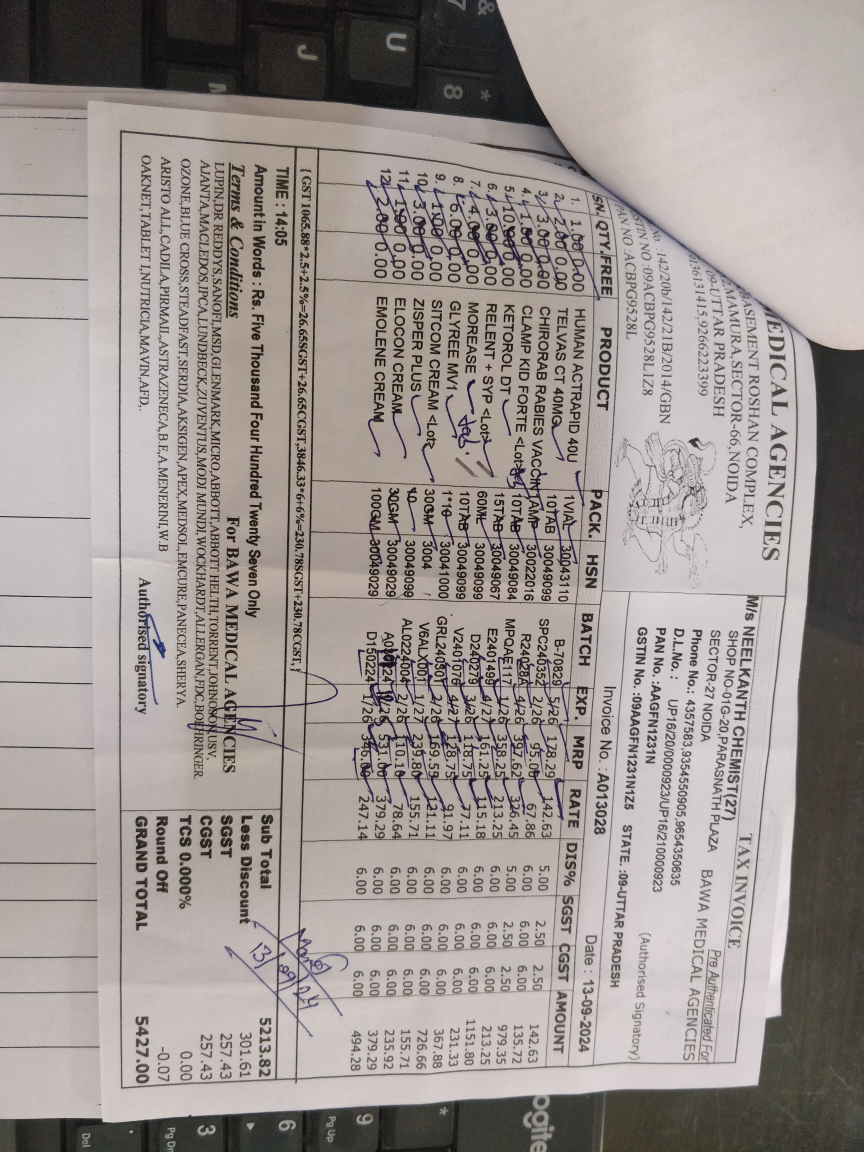 MEDICAL AGENCIES
BASEMENT ROSHAN COMPLEX,
MAMURA, SECTOR-66, NOIDA
09-UTTAR PRADESH
0136131415,9266223399
No. :142/20b/142/21B/2014/GBN
STIN NO :09ACBPG9528L1Z8
PAN NO :ACBPG9528L
TAX INVOICE
M/s NEELKANTH CHEMIST(27)
SHOP NO-01G-20,PARASNATH PLAZA
SECTOR-27 NOIDA
Phone No.: 4357583,9354550905,9654350635
D.L.No. : UP16/20/0000923/UP16/210000923
PAN No. :AAGFN1231N
GSTIN No. :09AAGFN1231N1Z5 STATE. :09-UTTAR PRADESH
Pre Authenticated For
BAWA MEDICAL AGENCIES
(Authorised Signatory)
Invoice No. : A013028 Date : 13-09-2024
SN. QTY. FREE PRODUCT PACK. HSN BATCH EXP. MRP RATE DIS% SGST CGST AMOUNT
1. 1.00 0.00 HUMAN ACTRAPID 40U 1VIAL 30043110 B-70829 5/26 178.29 142.63 5.00 2.50 2.50 142.63
2. 2.00 0.00 TELVAS CT 40MG 10TAB 30049099 SPC240352 2/26 95.00 67.86 6.00 6.00 6.00 135.72
3. 3.00 0.00 CHIRORAB RABIES VACCIN 1AMP 30022016 R24028A 4/26 397.62 326.45 5.00 2.50 2.50 979.35
4. 1.00 0.00 CLAMP KID FORTE <Lot> 10TAB 30049084 MPQAE117 1/26 358.25 213.25 6.00 6.00 6.00 213.25
5. 10.00 0.00 KETOROL DT 15TAB 30049067 E2401199 4/27 161.25 115.18 6.00 6.00 6.00 1151.80
6. 3.00 0.00 RELENT + SYP <Lot> 60ML 30049099 D240279 3/26 118.75 77.11 6.00 6.00 6.00 231.33
7. 4.00 0.00 MOREASE 10TAB 30049099 V2401076 4/27 128.75 91.97 6.00 6.00 6.00 367.88
8. 6.00 0.00 GLYREE MV1 1*10 30041000 GRL240301 2/26 169.55 121.11 6.00 6.00 6.00 726.66
9. 1.00 0.00 SITCOM CREAM <Lot> 30GM 3004 V6ALX001 1/27 239.80 155.71 6.00 6.00 6.00 155.71
10. 3.00 0.00 ZISPER PLUS 10 30049099 AL0224004 2/26 110.10 78.64 6.00 6.00 6.00 235.92
11. 1.00 0.00 ELOCON CREAM 30GM 30049029 531.00 379.29 6.00 6.00 6.00 379.29
12. 2.00 0.00 EMOLENE CREAM 100GM 30049029 D150224 1/26 346.00 247.14 6.00 6.00 6.00 494.28
{ GST 1065.88*2.5+2.5%=26.65SGST+26.65CGST,3846.33*6+6%=230.78SGST+230.78CGST, }
TIME : 14:05
Amount in Words : Rs. Five Thousand Four Hundred Twenty Seven Only
Terms & Conditions
For BAWA MEDICAL AGENCIES
LUPIN,DR REDDYS,SANOFI,MSD,GLENMARK,MICRO,ABBOTT,ABBOTT HELTH,TORRENT,JOHNOSON,USV,
AJANTA,MACLEDOS,IPCA,LUNDBECK,ZUVENTUS,MODI MUNDI,WOCKHARDT,ALLERGAN,FDC,BOEHRINGER
OZONE,BLUE CROSS,STEADFAST,SERDIA,AKSIGEN,APEX,MEDSOL,EMCURE,PANECEA,SHERYA
ARISTO ALL,CADILA,PIRMAIL,ASTRAZENECA,B.E,A.MENERINI,W.B
OAKNET,TABLET I,NUTRICIA,MAVIN,AFD,.
Authorised signatory
Sub Total 5213.82
Less Discount 301.61
SGST 257.43
CGST 257.43
TCS 0.000% 0.00
Round Off -0.07
GRAND TOTAL 5427.00
13/09/24
U
J
&
7
*
8
9
Pg Up
6
3
Pg D
Del
ogite